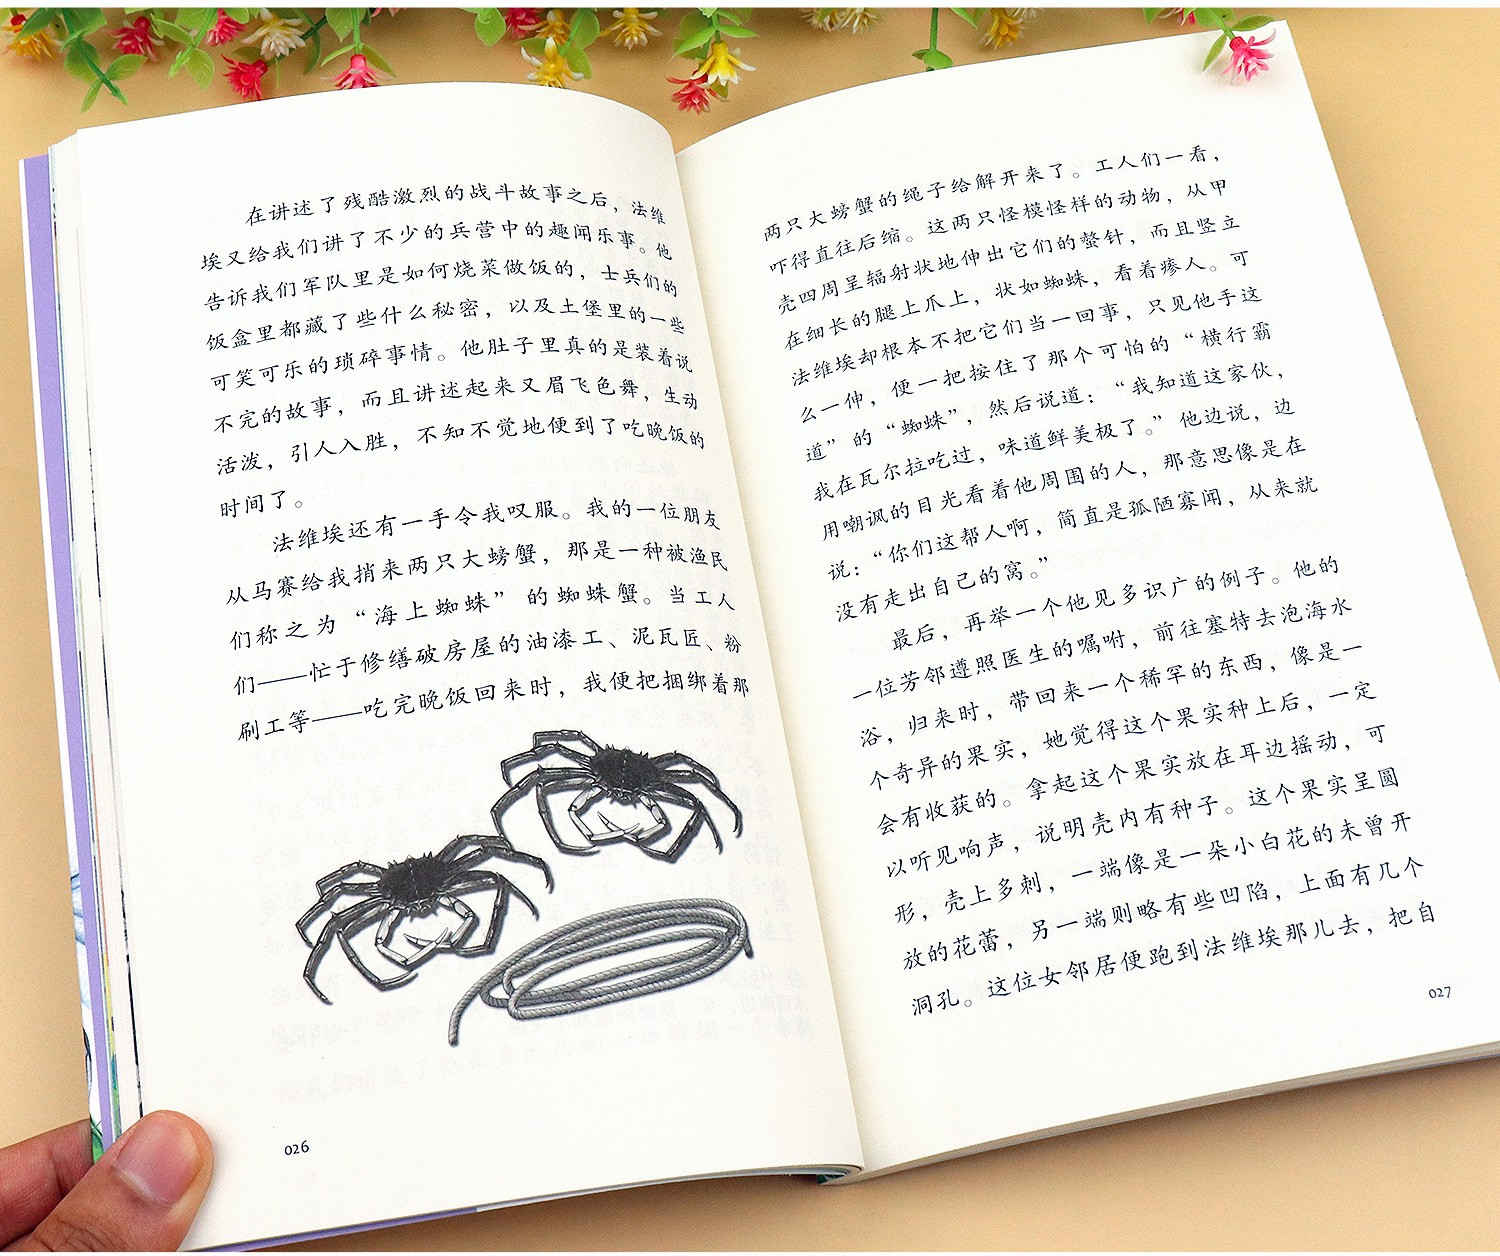 在讲述了残酷激烈的战斗故事之后，法维
埃又给我们讲了不少的兵营中的趣闻乐事。他
告诉我们军队里是如何烧菜做饭的，士兵们的
饭盒里都藏了些什么秘密，以及土堡里的一些
可笑可乐的琐碎事情。他肚子里真的是装着说
不完的故事，而且讲述起来又眉飞色舞，生动
活泼，引人入胜，不知不觉地便到了吃晚饭的
时间了。
法维埃还有一手令我叹服。我的一位朋友
从马赛给我捎来两只大螃蟹，那是一种被渔民
们称之为“海上蜘蛛”的蜘蛛蟹。当工人
们——忙于修缮破房屋的油漆工、泥瓦匠、粉
刷工等——吃完晚饭回来时，我便把捆绑着那
026
两只大螃蟹的绳子给解开来了。工人们一看，
吓得直往后缩。这两只怪模怪样的动物，从甲
壳四周呈辐射状地伸出它们的螯针，而且竖立
在细长的腿上爪上，状如蜘蛛，看着瘆人。可
法维埃却根本不把它们当一回事，只见他手这
么一伸，便一把按住了那个可怕的“横行霸
道”的“蜘蛛”，然后说道：“我知道这家伙，
我在瓦尔拉吃过，味道鲜美极了。”他边说，边
用嘲讽的目光看着他周围的人，那意思像是在
说：“你们这帮人啊，简直是孤陋寡闻，从来就
没有走出自己的窝。”
最后，再举一个他见多识广的例子。他的
一位芳邻遵照医生的嘱咐，前往塞特去泡海水
浴，归来时，带回来一个稀罕的东西，像是一
个奇异的果实，她觉得这个果实种上后，一定
会有收获的。拿起这个果实放在耳边摇动，可
以听见响声，说明壳内有种子。这个果实呈圆
形，壳上多刺，一端像是一朵小白花的未曾开
放的花蕾，另一端则略有些凹陷，上面有几个
洞孔。这位女邻居便跑到法维埃那儿去，把自
027